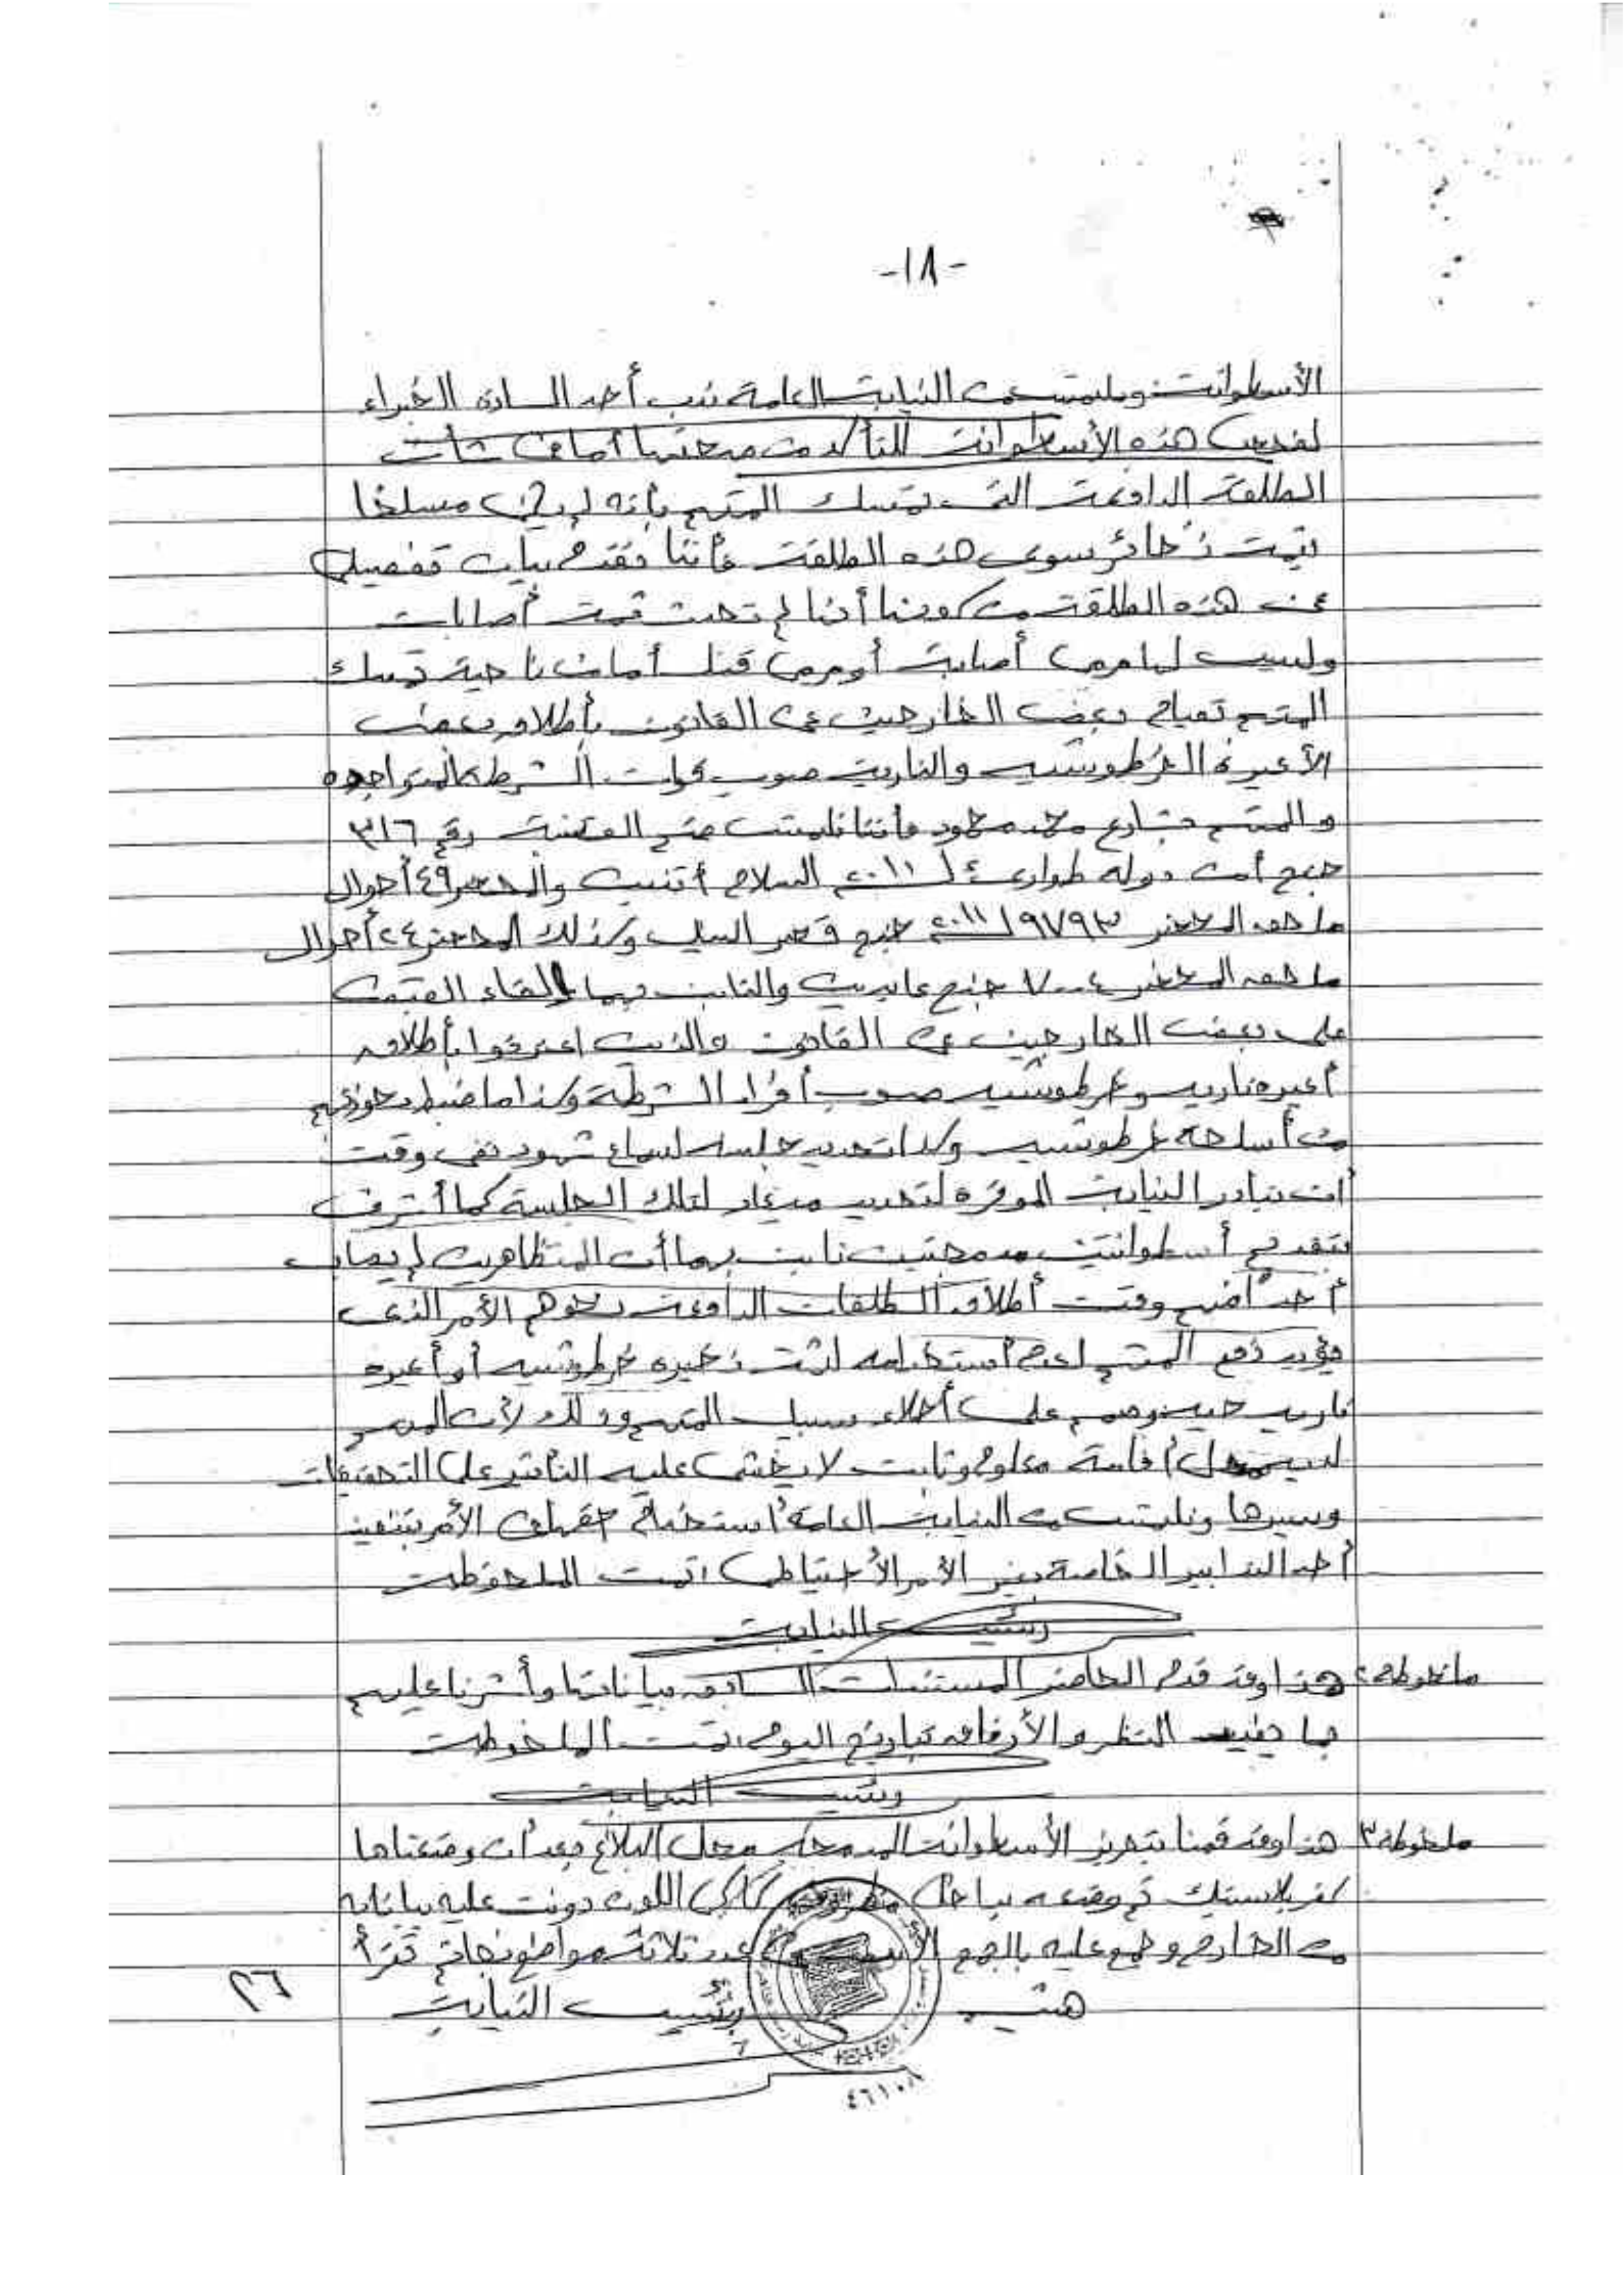 -١٨-
الأسطوانة ويلتمس من النيابة العامة ندب أحد السادة الخبراء
لفحص هذه الأسطوانة للتأكد من صحتها أما فى شأن
الطلقة الدافعة التى تمسك المتهم بأنه لم يكن مسلحا
بثمة ذخائر سوى هذه الطلقة فأننا نقدم بيان تفصيلى
عن هذه الطلقة من كونها أنها لم تحدث ثمة أصابات
وليس لها مرمى أصابة أو مرمى قتل أما من ناحية تمسك
المتهم بقيام بعض الخارجين عن القانون بأطلاق بعض
الأعيرة الخرطوشيه والنارية صوب قوات الشرطة المتواجده
والمتهم بشارع محمد محمود فأننا نلتمس ضم القضية رقم ٣١٦
جنح أمن دوله طوارئ لـ ٢٠١١ السلاح أتنين والمحضر ٤٩ أحوال
ملحق المحضر ٩٧٩٣ / ٢٠١١ جنح قصر النيل وكذلك المحضر ٢٤ أحوال
ملحق المحضر ٧٠٠٤ جنح عابدين والثابت بهما إلقاء القبض
على بعض الخارجين عن القانون والذين اعترفوا بأطلاق
أعيره ناريه وخرطوشيه صوب أفراد الشرطة وكذا ما ضبط بحوزتهم
من أسلحة خرطوشيه وكذا تحديد جلسه لسماع شهود نفى وقت
أن تبادر النيابة الموقرة لتحديد ميعاد لتلك الجلسة كما أتشرف
بتقديم أسطوانتين مدمجتين ثابت بهما أن المتظاهرين لم يصاب
أحد منهم وقت أطلاق الطلقات الدافعة نحوهم الأمر الذى
يؤيد دفع المتهم لعدم أستخدامه لثمة ذخيره خرطوشيه أو أعيره
ناريه حيه وصمم على أخلاء سبيل المتهم وذلك لأن المتهم
لديه محل أقامة معلوم وثابت لا يخشى عليه التأثير على التحقيقات
وسيرها ونلتمس من النيابة العامة أستخدام حقها فى الأمر بتنفيذ
أحد التدابير الخاصة بغير الأمر الأحتياطى، تمت الملحوظة
رئيس النيابة
ملحوظة٢ هذا وقد قدم الحاضر المستندات السابقه بياناتها وأشرنا عليهم
بما يفيد النظر والأرفاق بتاريخ اليوم، تمت الملحوظة
رئيس النيابة
ملحوظة٣ هذا وقد قمنا بتحريز الأسطوانة المدمجه محل البلاغ بعد أن وضعناها
بلاستيك ثم وضعه بداخل مظروف كاكى اللون دونت عليه بياناته
من الخارج وجمع عليه بالجمع عدد ثلاثة مواضع بخاتم تقرأ
رئيس النيابة
٢٦
٤٦١٠٨